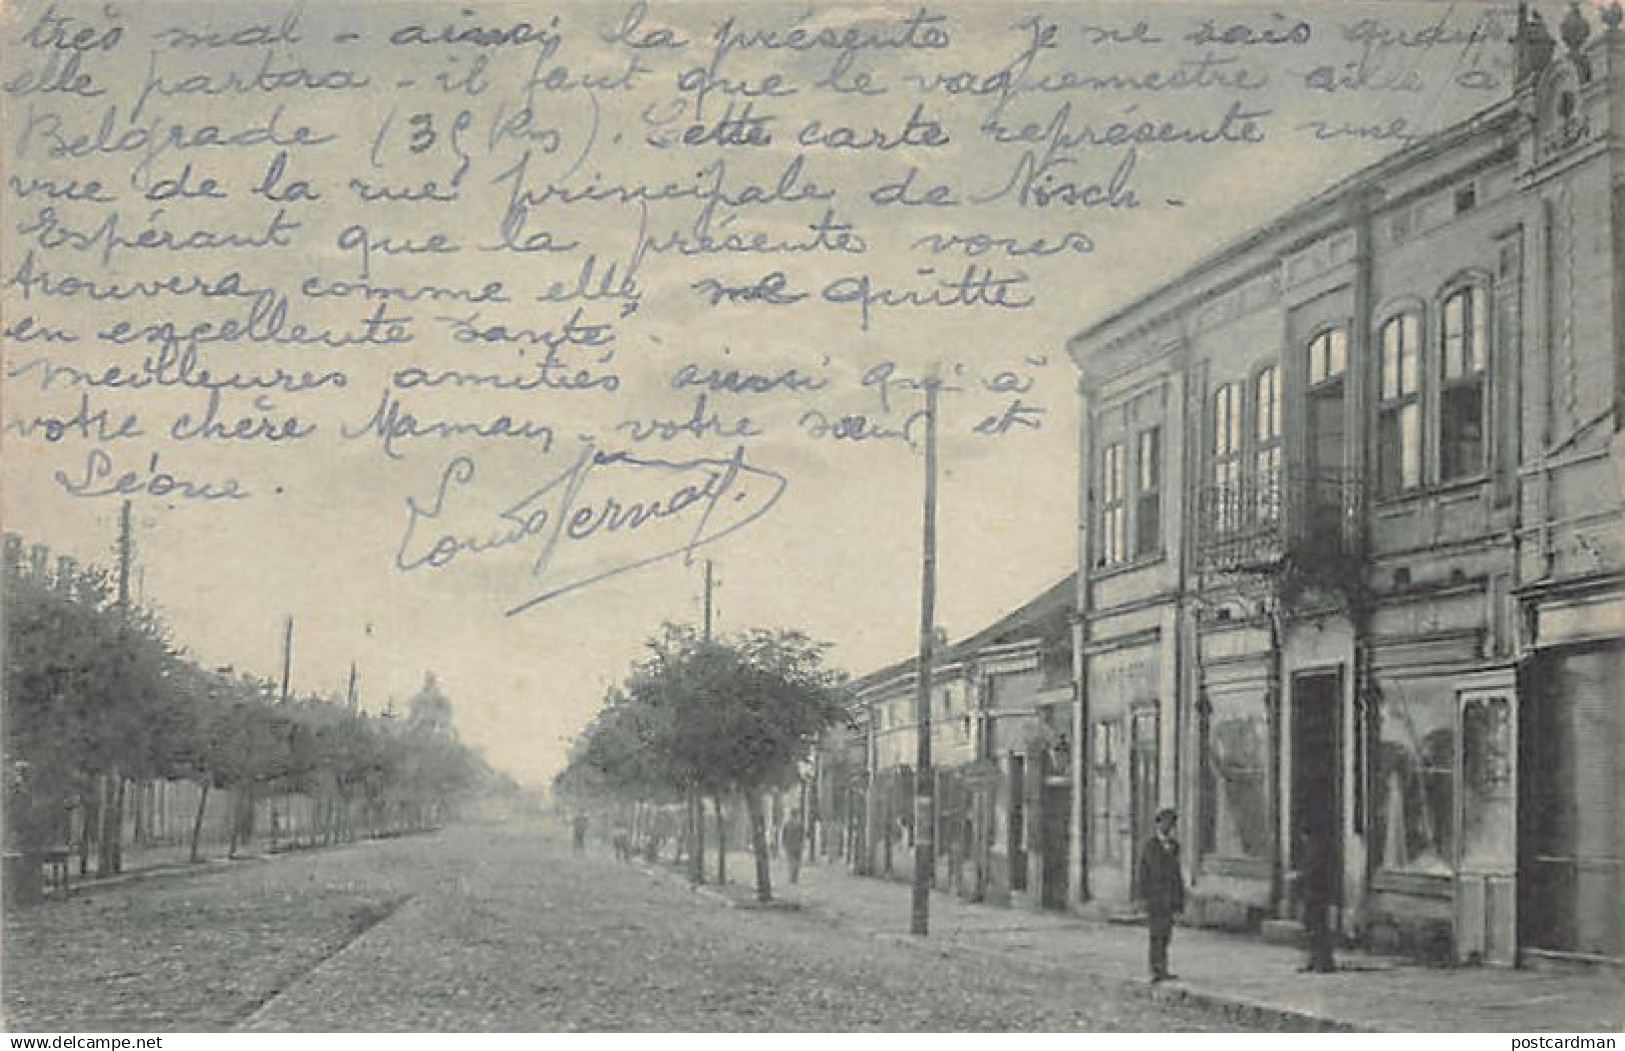 très mal - ainsi la présente je ne sais quand
elle partira - il faut que le vaguemestre aille à
Belgrade (35 Km). Cette carte représente une
vue de la rue principale de Nisch -
Espérant que la présente vous
trouvera, comme elle me quitte
en excellente santé.
Meilleures amitiés ainsi qu'à
votre chère Maman, votre sœur et
Léone.
delcampe.net
postcardman